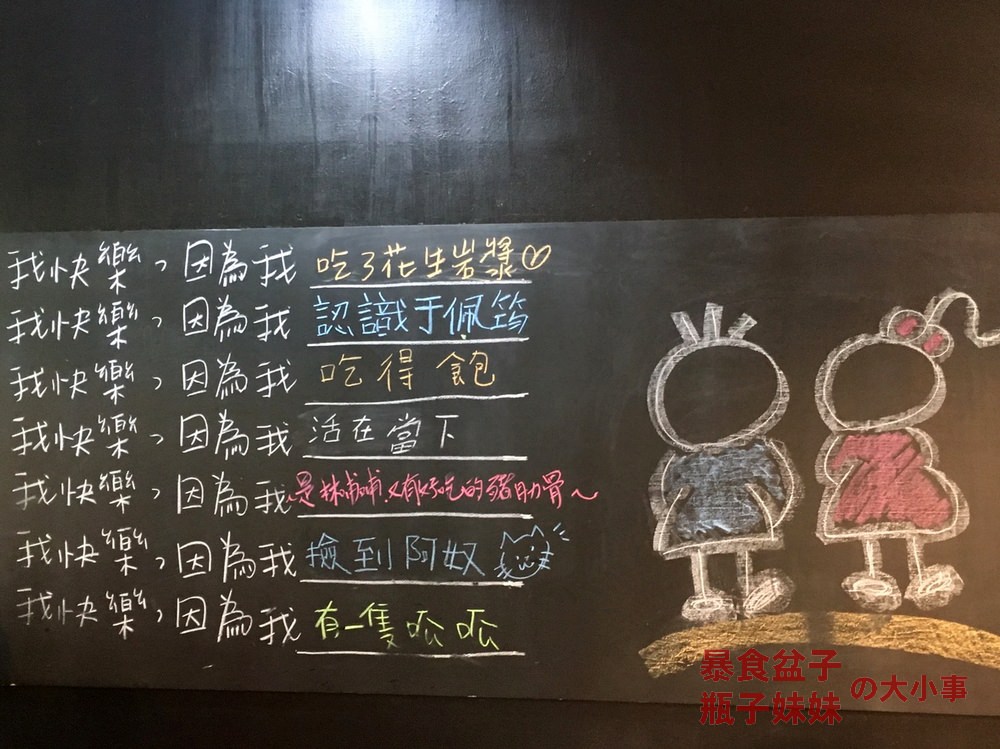 我快樂，因為我吃了花生岩漿♡
我快樂，因為我認識于佩筠
我快樂，因為我吃得飽
我快樂，因為我活在當下
我快樂，因為我是林哺哺又有好吃的豬肋骨～
我快樂，因為我撿到阿奴
我快樂，因為我有一隻呱呱
暴食盆子
瓶子妹妹の大小事